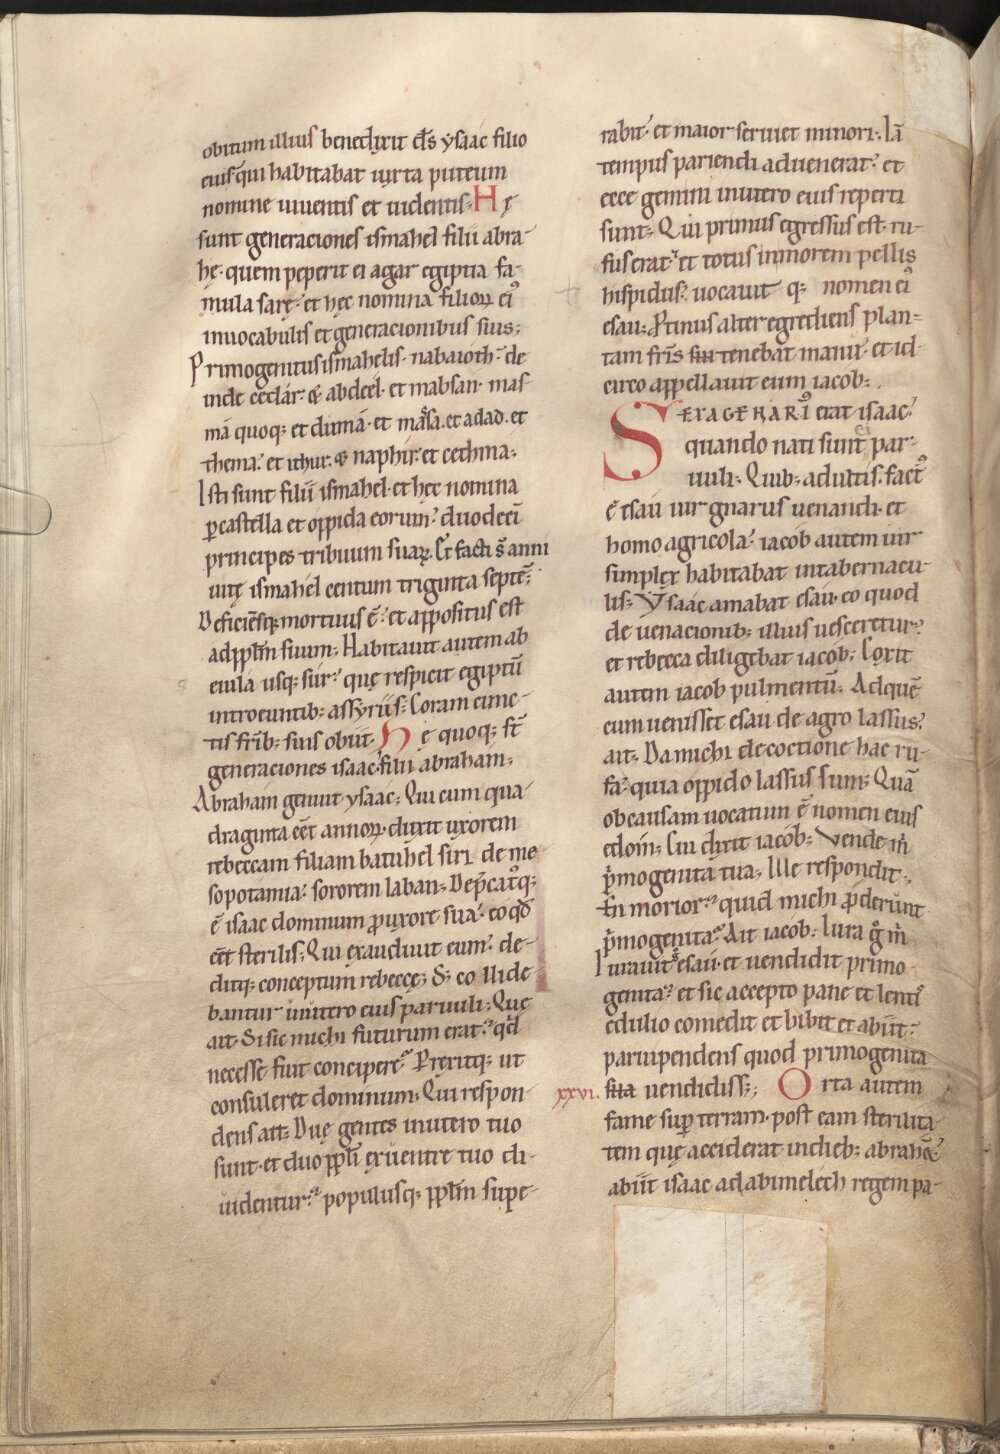 obitum illius benedixit d̄s ysaac filio
eius q̄ui habitabat iuxta puteum
nomine uiuentis et uidentis· Hę
sunt generaciones ismahel filii abra-
hę· quem peperit ei agar egiptia fa-
mula sarę· et hęc nomina filioꝝ ei᷒
inuocabulis et generacionibus suis;
Primogenitus ismahelis· nabaioth· de
inde cedar· & abdeel· et mabsan· mas-
mā quoq; et dumā· et māsa· et adad· et
thema· et ithur· & naphir· et cethma;
Isti sunt filii ismahel· et hęc nomina
ꝑ castella et oppida eorum· duodecī
principes tribuum suaꝝ· Et facti s̄ anni
uitę ismahel centum triginta septē;
Deficiēsq; mortuus ē· et appositus est
ad pplm̄ suum; Habitauit autem ab
euila usq; sur· quę respicit egiptū
introeuntib; assyrus; Coram cunc-
tis fr̄ib; suis obiit· Hę quoq; st̄
generaciones isaac· filii abraham;
Abraham genuit ysaac; Qui cum qua-
draginta eēt annoꝝ· duxit uxorem
rebeccam filiam batuhel siri de me-
sopotamia· sororem laban; Dep̄cat᷒q;
ē isaac dominum ꝓ uxore sua· eo qd̄
eēt sterilis; Qui exaudiuit eum· de-
ditq; conceptum rebeccę; S; collide
bantur in utero eius paruuli; Quę
ait· Si sic michi futurum erat· qd̄
necesse fuit concipere· Prexitq; ut
consuleret dominum; Qui respon-
dens ait; Duę gentes in utero tuo
sunt· et duo ppl̄i ex uentre tuo di-
uidentur· populusq; pplm̄ supe-
rabit· et maior seruiet minori; Iā
tempus pariendi aduenerat· et
ecce gemini in utero eius reperti
sunt; Qui primus egressus est· ru-
fus erat· et totus in morem pellis
hispidus· uocauit q; nomen ei᷒
esau; Ꝓtinus alter egrediens plan-
tam fr̄is sui tenebat manu· et id-
circo appellauit eum iacob;
SEXAGENARI᷒ erat isaac·
quando nati sunt par-
uuli; Quib; adultis· fact᷒
ē esau uir gnarus uenandi· et
homo agricola· iacob autem uir
simplex habitabat in tabernacu-
lis; Ysaac amabat esau· eo quod
de uenacionib; illius uesceretur·
et rebecca diligebat iacob; Coxit
autem iacob pulmentū; Ad quē
cum uenisset esau de agro lassus·
ait; Da michi de coctione hac ru-
fa· quia oppido lassus sum; Quā
ob causam uocatum ē nomen eius
edom; Cui dixit iacob; Vende m̄
p̄mogenita tua; Ille respondit;
En morior· quid michi ꝓderunt
p̄mogenita· Ait iacob; Iura g̊ m̄
Iurauit esau· et uendidit primo-
genita· et sic accepto pane et lentis
edulio comedit et bibit et abiit·
paruipendens quod primogenita
xxvi. sua uendidiss;; Orta autem
fame sup̄ terram· post eam sterilita-
tem quę acciderat in dieb; abrahā·
abiit isaac ad abimelech regem pa-